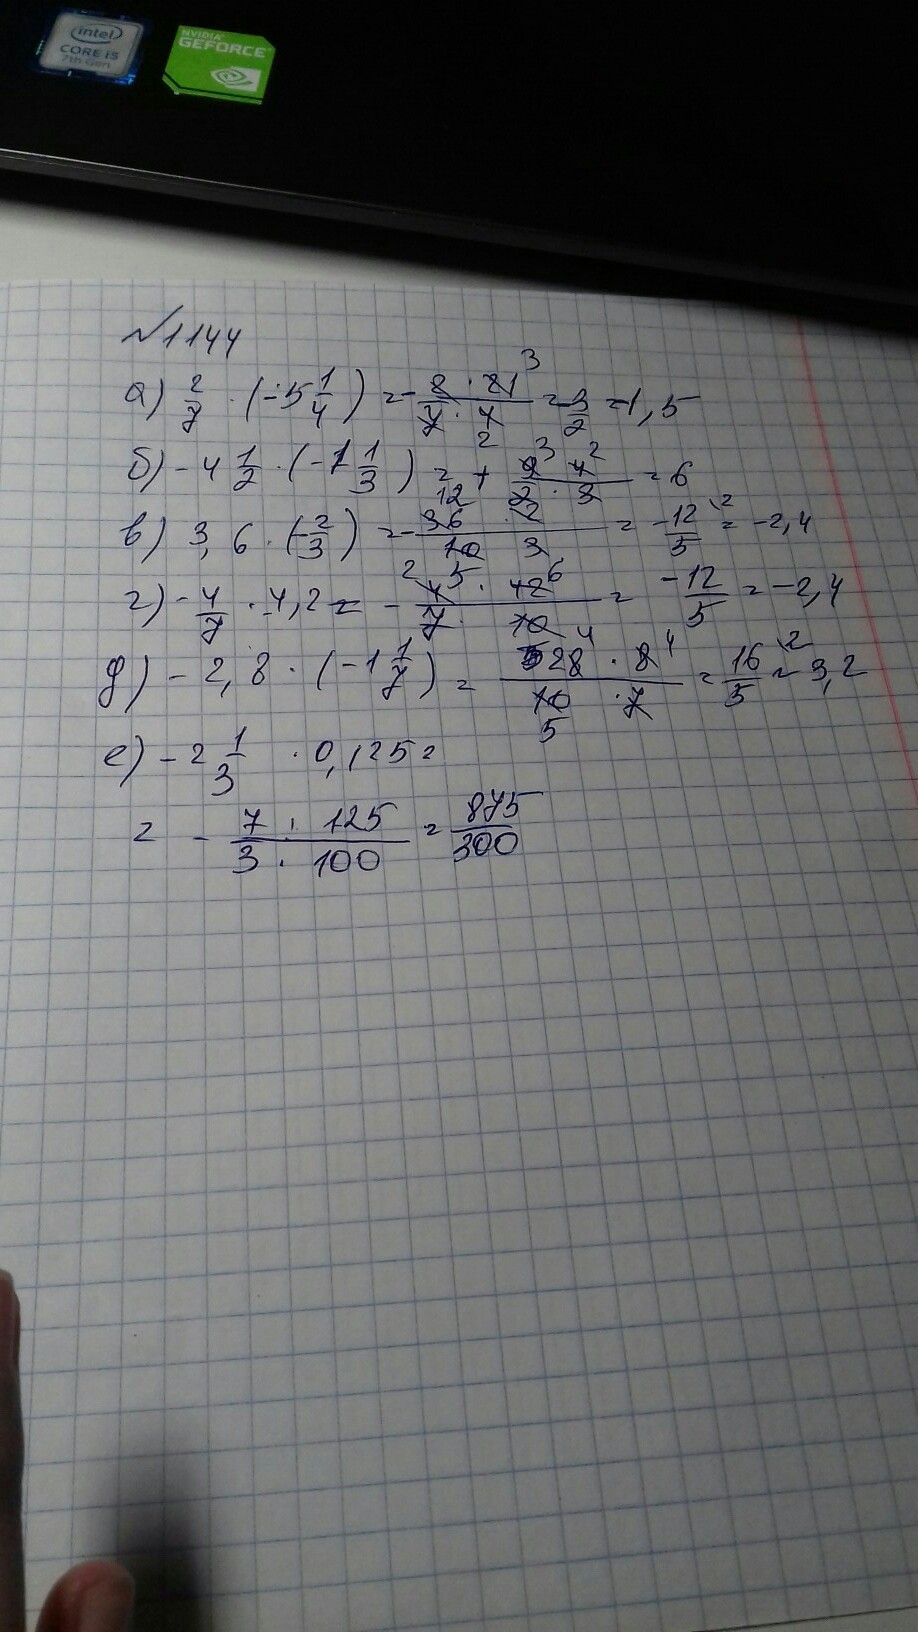 intel
CORE i5
7th Gen
NVIDIA
GEFORCE
№1144
а) 2/7 · (-5 1/4) = - 2 · 21 3 / 7 · 4 2 = -3/2 = -1,5
б) -4 1/2 · (-1 1/3) = + 9 3 · 4 2 / 2 · 3 = 6
в) 3,6 · (-2/3) = - 36 12 · 2 / 10 5 · 3 = -12/5 \2 = -2,4
г) -4/7 · 4,2 = - 4 2 · 42 6 / 7 · 10 5 = -12/5 = -2,4
д) -2,8 · (-1 1/7) = 28 4 · 8 4 / 10 5 · 7 = 16/5 \2 = 3,2
е) -2 1/3 · 0,125 =
= - 7 · 125 / 3 · 100 = 875/300